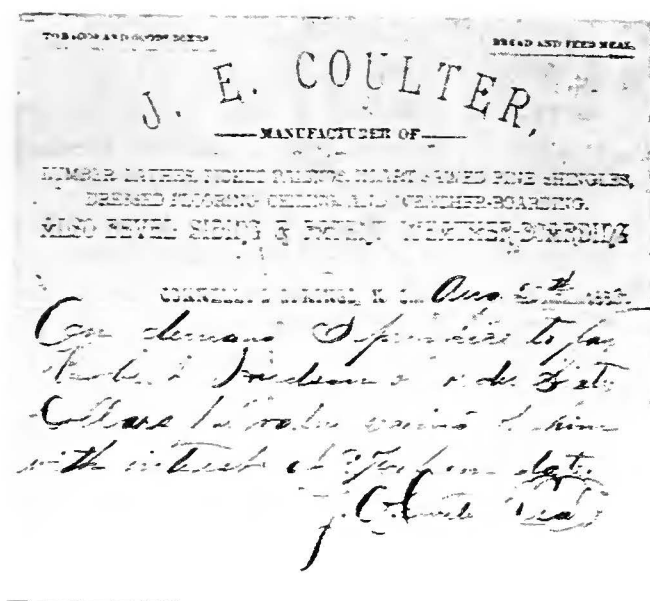 TOBACCO AND GOODS BOXES
BREAD AND FEED MEAL.
J. E. COULTER,
MANUFACTURER OF
LUMBER, LATHES, PICKET PALINGS, HEART SAWED PINE SHINGLES,
DRESSED FLOORING, CEILING AND WEATHER-BOARDING.
ALSO BEVEL SIDING & PATENT WEATHER-BOARDING
CONNELLY SPRINGS, N. C., Aug
On demand I promise to pay
Hudson or order Sixty
Dollars for value received of him
with interest at from date
J. E. Coulter Seal